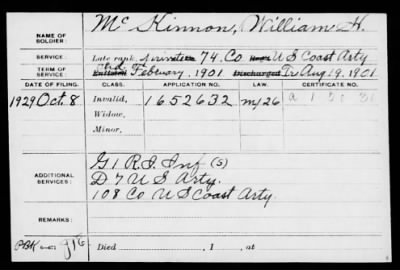 NAME OF SOLDIER: McKinnon, William H.
SERVICE: Late rank, Private 74. Co. Regt U S Coast Arty
TERM OF SERVICE: Enlisted February, 1901 Discharged Tr Aug 19, 1901
DATE OF FILING. CLASS. APPLICATION NO. LAW. CERTIFICATE NO.
1929 Oct. 8 Invalid, 1652632 m/26
Widow,
Minor,
ADDITIONAL SERVICES: G 1 R.I. Inf (S)
D 7 U S Arty.
108 Co U S Coast Arty.
REMARKS:
PBK 916 Died , 1 , at